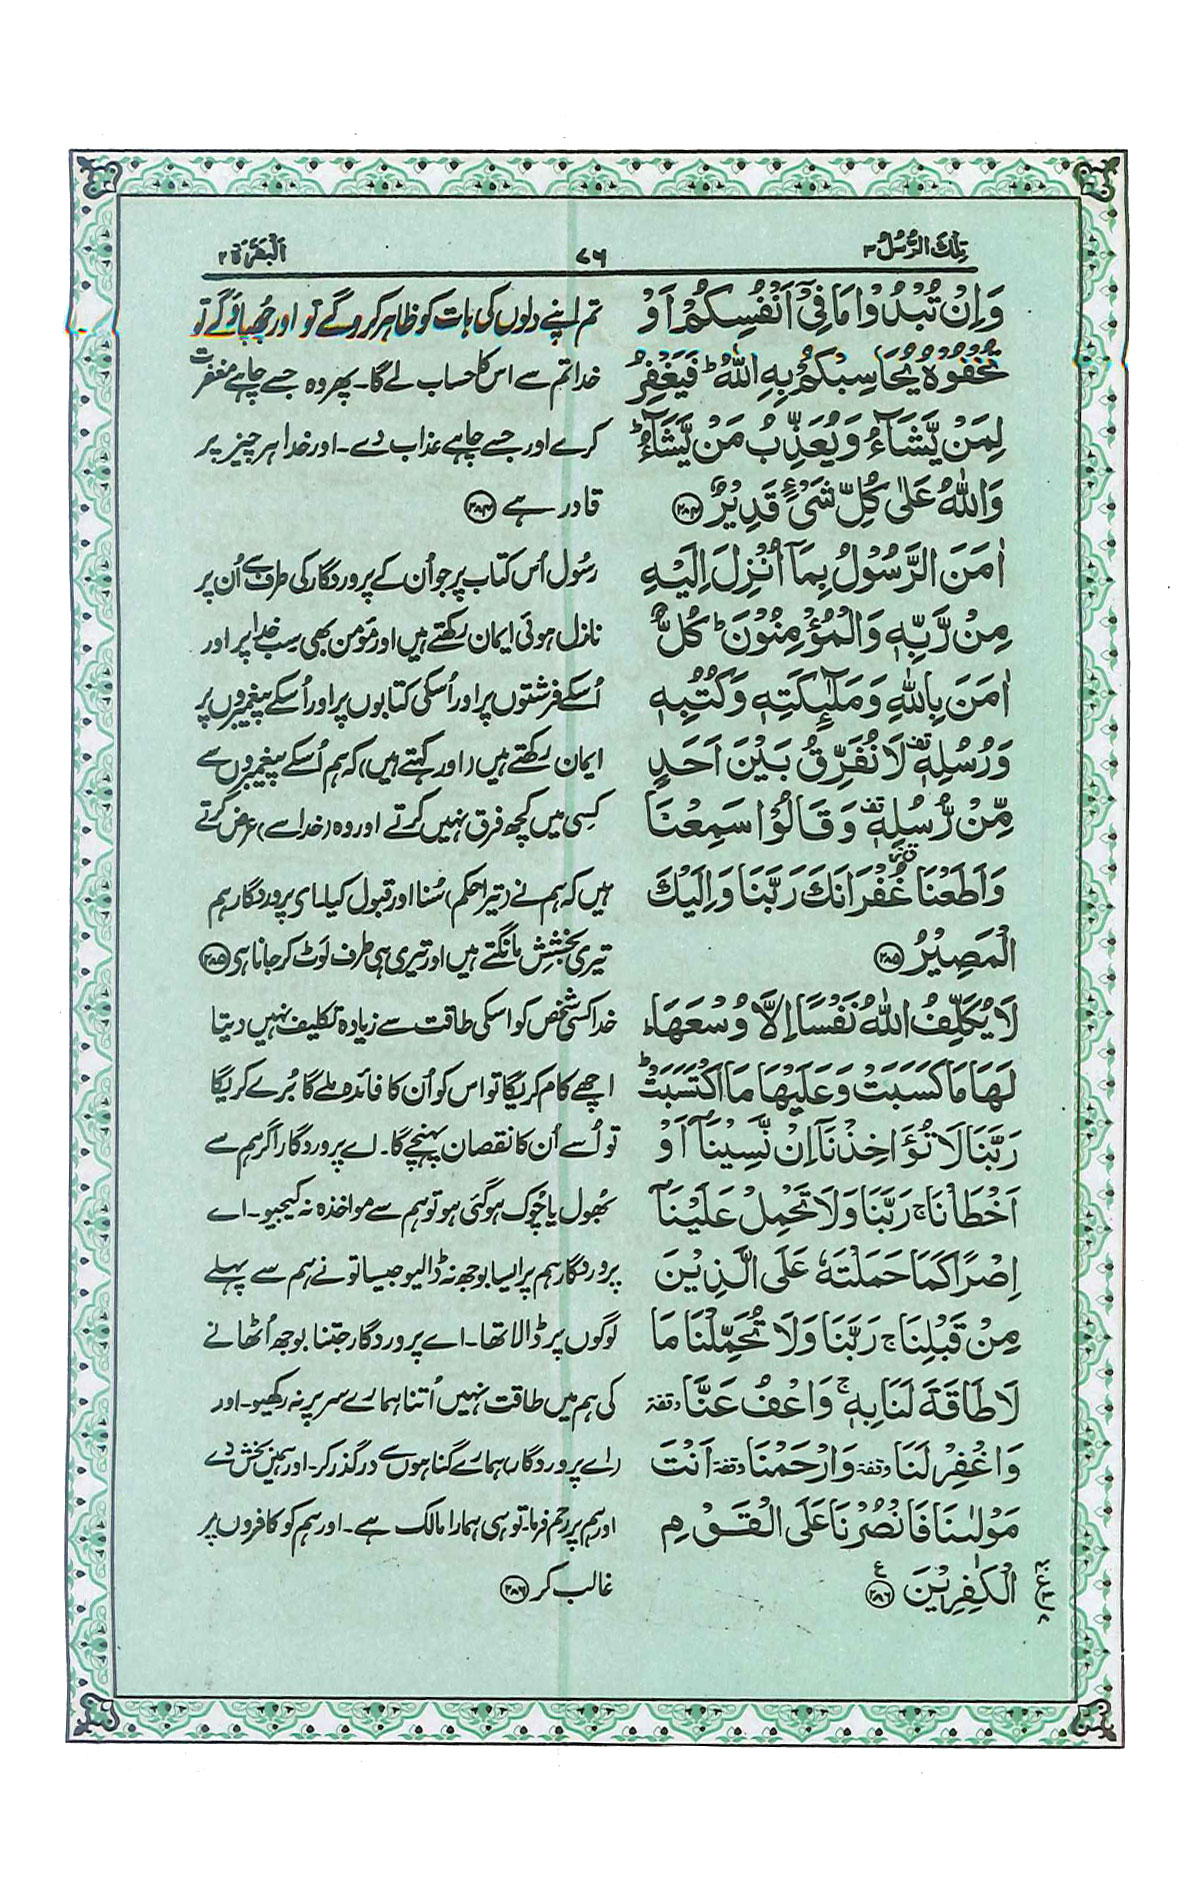 تِلْكَ الرُّسُلُ ۳
۷۶
اَلْبَقَرَة ۲
وَاِنْ تُبْدُوْا مَا فِیْۤ اَنْفُسِكُمْ اَوْ
تُخْفُوْهُ یُحَاسِبْكُمْ بِهِ اللّٰهُ ؕ فَیَغْفِرُ
لِمَنْ یَّشَآءُ وَیُعَذِّبُ مَنْ یَّشَآءُ ؕ
وَاللّٰهُ عَلٰی كُلِّ شَیْءٍ قَدِیْرٌ ۲۸۴
اٰمَنَ الرَّسُوْلُ بِمَاۤ اُنْزِلَ اِلَیْهِ
مِنْ رَّبِّهٖ وَالْمُؤْمِنُوْنَ ؕ كُلٌّ
اٰمَنَ بِاللّٰهِ وَمَلٰٓئِكَتِهٖ وَكُتُبِهٖ
وَرُسُلِهٖ قف لَا نُفَرِّقُ بَیْنَ اَحَدٍ
مِّنْ رُّسُلِهٖ قف وَقَالُوْا سَمِعْنَا
وَاَطَعْنَا غُفْرَانَكَ رَبَّنَا وَاِلَیْكَ
الْمَصِیْرُ ۲۸۵
لَا یُكَلِّفُ اللّٰهُ نَفْسًا اِلَّا وُسْعَهَا ؕ
لَهَا مَا كَسَبَتْ وَعَلَیْهَا مَا اكْتَسَبَتْ ؕ
رَبَّنَا لَا تُؤَاخِذْنَاۤ اِنْ نَّسِیْنَاۤ اَوْ
اَخْطَاْنَا ۚ رَبَّنَا وَلَا تَحْمِلْ عَلَیْنَاۤ
اِصْرًا كَمَا حَمَلْتَهٗ عَلَی الَّذِیْنَ
مِنْ قَبْلِنَا ۚ رَبَّنَا وَلَا تُحَمِّلْنَا مَا
لَا طَاقَةَ لَنَا بِهٖ ۚ وَاعْفُ عَنَّا وقفة
وَاغْفِرْ لَنَا وقفة وَارْحَمْنَا وقفة اَنْتَ
مَوْلٰىنَا فَانْصُرْنَا عَلَی الْقَوْمِ
الْكٰفِرِیْنَ ۲۸۶
تم اپنے دلوں کی بات کو ظاہر کرو گے تو اور چھپاؤ گے تو
خدا تم سے اس کا حساب لے گا۔ پھر وہ جسے چاہے مغفرت
کرے اور جسے چاہے عذاب دے۔ اور خدا ہر چیز پر
قادر ہے ۲۸۴
رسُول اُس کتاب پر جو اُن کے پروردگار کی طرف سے اُن پر
نازل ہوئی ایمان رکھتے ہیں اور مومن بھی سب خدا پر اور
اُسکے فرشتوں پر اور اُسکی کتابوں پر اور اُسکے پیغمبروں پر
ایمان رکھتے ہیں (اور کہتے ہیں) کہ ہم اُسکے پیغمبروں سے
کسِی میں کچھ فرق نہیں کرتے اور وہ (خدا سے) عرض کرتے
ہیں کہ ہم نے (تیرا حکم) سُنا اور قبول کیا۔ ای پروردگار ہم
تیری بخشِش مانگتے ہیں اور تیری ہی طرف لَوٹ کر جانا ہی ۲۸۵
خدا کسی شخص کو اسکی طاقت سے زیادہ تکلیف نہیں دیتا
اچھے کام کریگا تو اس کو اُن کا فائدہ ملے گا بُرے کریگا
تو اُسے اُن کا نقصان پہنچے گا۔ اے پروردگار اگر ہم سے
بھُول یا چُوک ہو گئی ہو تو ہم سے مواخذہ نہ کیجیو۔ اے
پروردگار ہم پر ایسا بوجھ نہ ڈالیو جیسا تو نے ہم سے پہلے
لوگوں پر ڈالا تھا۔ اے پروردگار جتنا بوجھ اُٹھانے
کی ہم میں طاقت نہیں اُتنا ہمارے سر پر نہ رکھیو۔ اور
(اے پروردگار) ہمارے گناہوں سے درگذر کر۔ اور ہمیں بخش دے
اور ہم پر رحم فرما۔ تو ہی ہمارا مالک ہے۔ اور ہم کو کافروں پر
غالب کر ۲۸۶